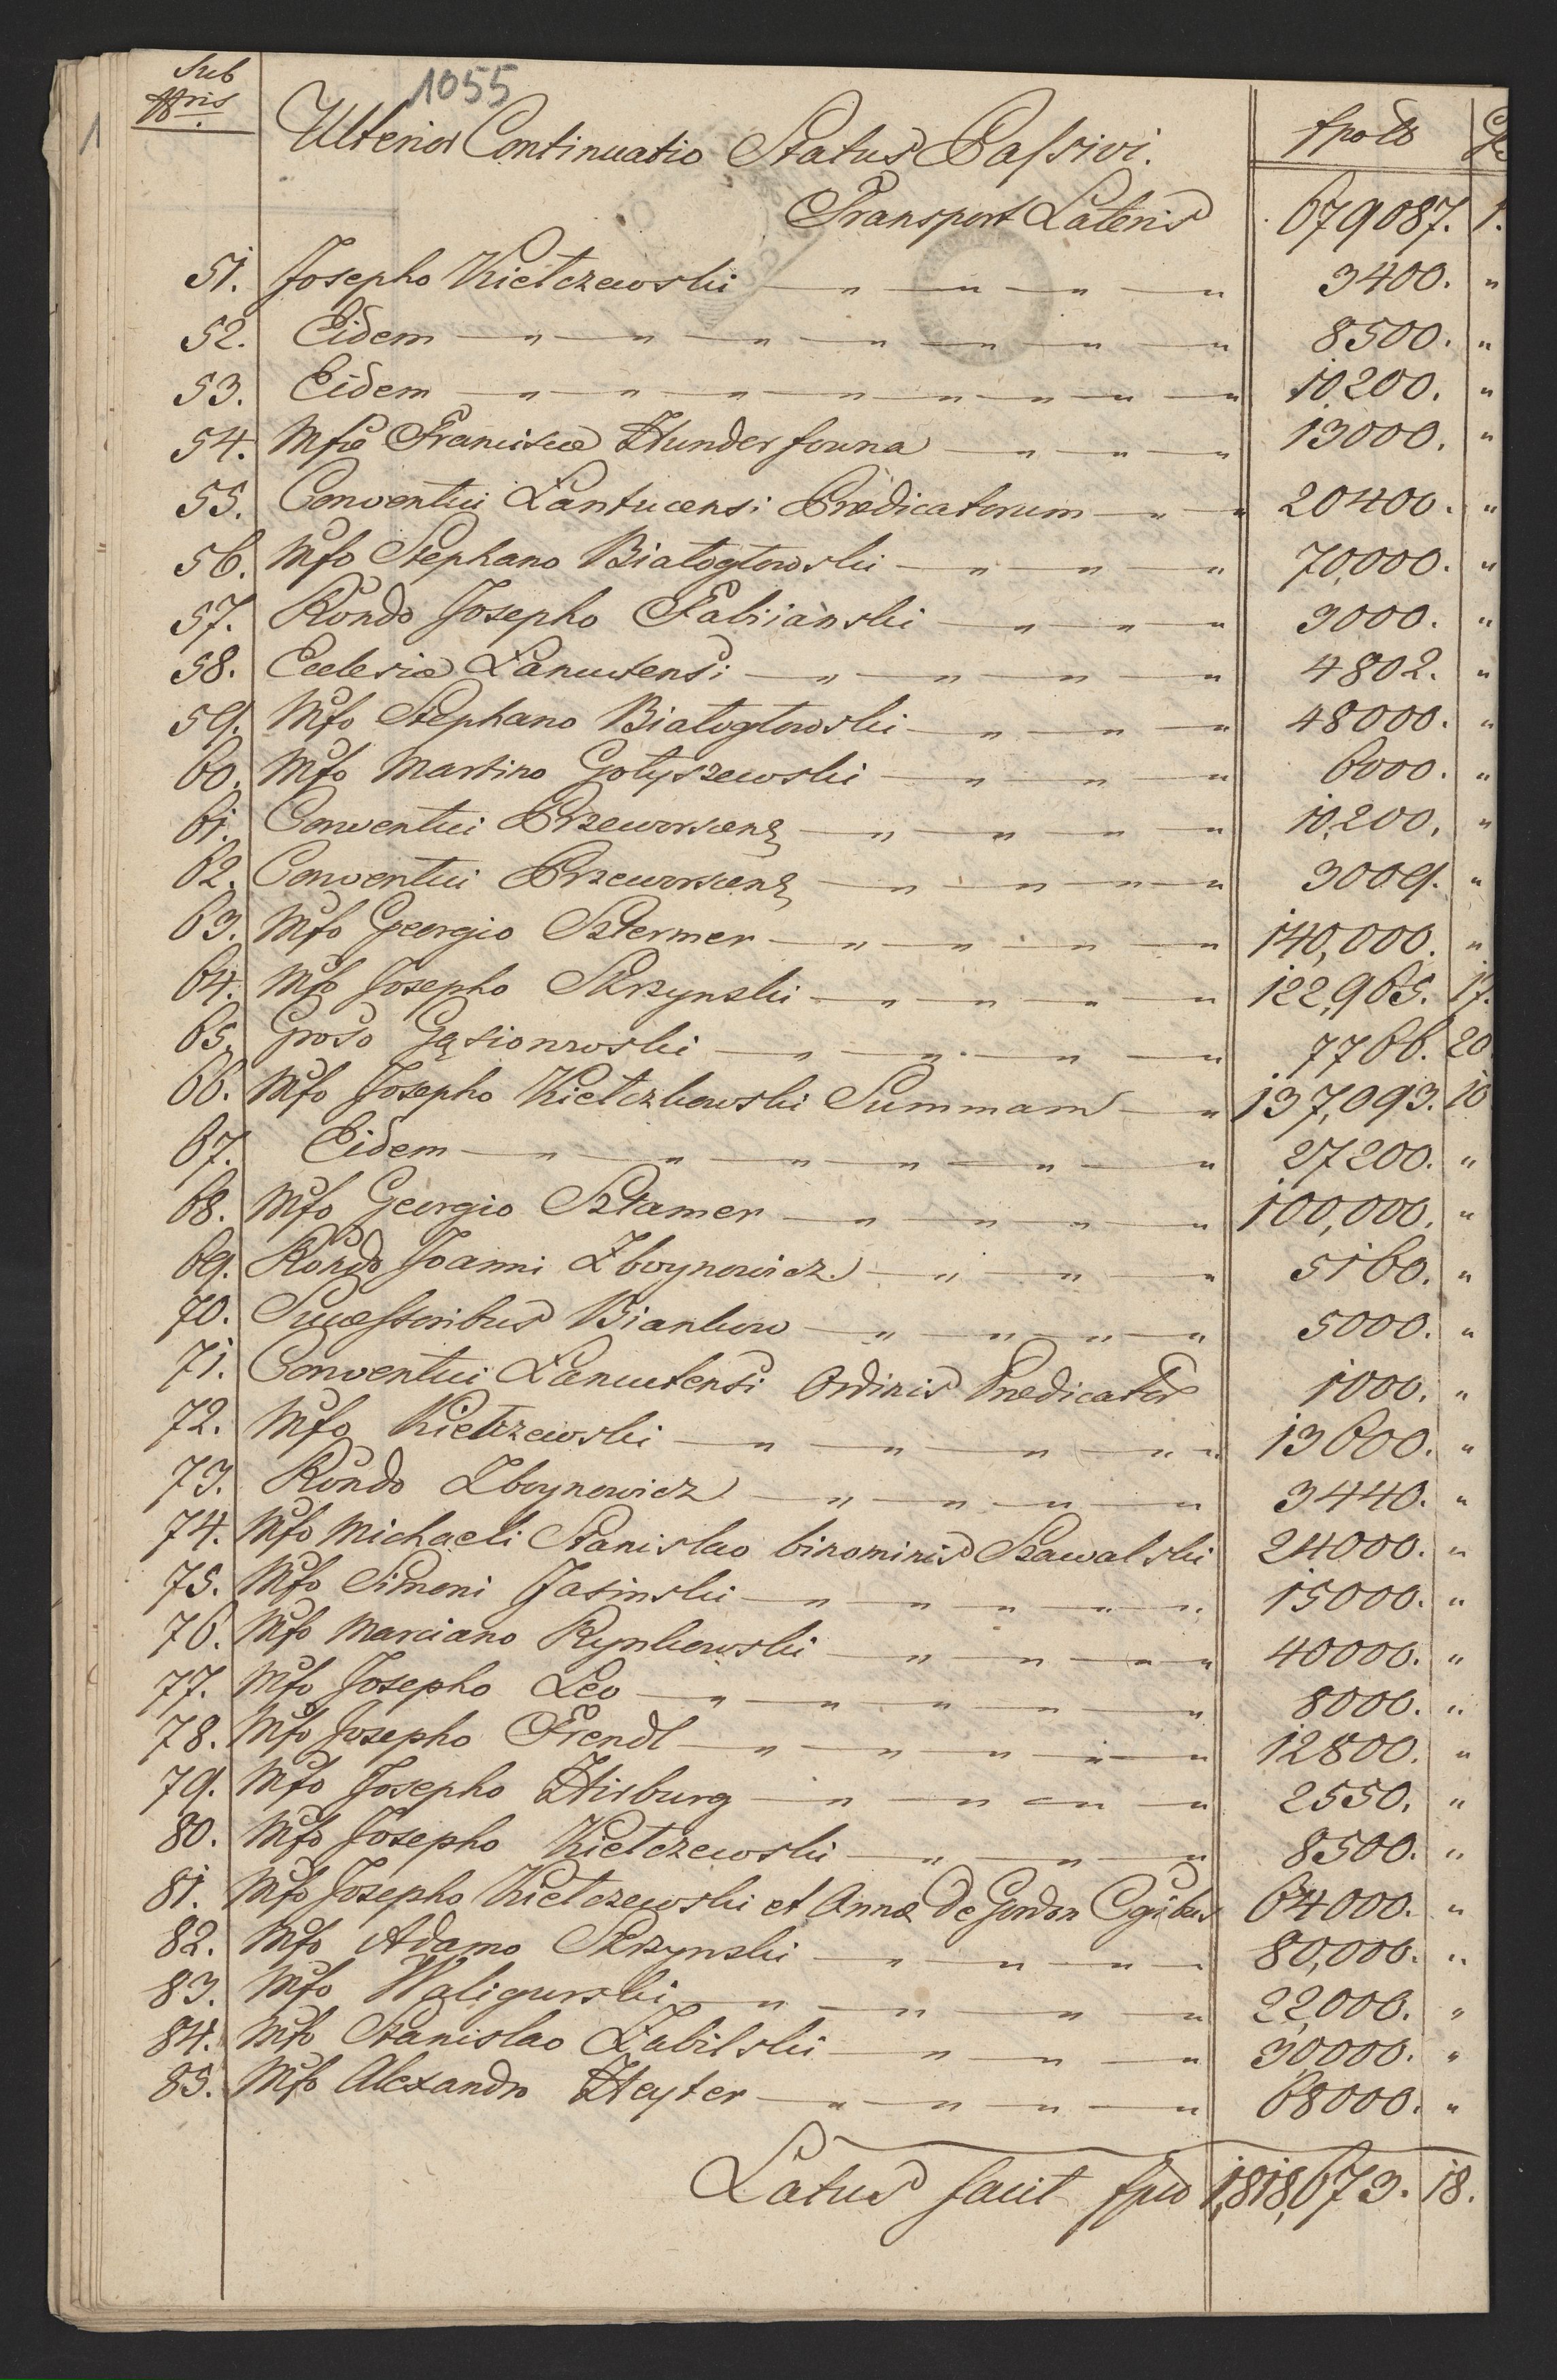 1055
Sub Nris
Ulterior Continuatio Status Passivi. fpolo Gr
Transport Lateris 679087. 1.
51. Josepho Kiełczewski 3400. "
52. Eidem 8500. "
53. Eidem 10,200. "
54. Mfæ Franciscæ Hundersowna 13000. "
55. Conventui Lantucensi Prædicatorum 20400. "
56. Mfo Stephano Białogłowski 70,000. "
57. Rondo Josepho Fabiianski 3000. "
58. Ecclesiæ Lancutensi 4802. "
59. Mfo Stephano Białogłowski 48000. "
60. Mfo Martino Gołyszewski 6000. "
61. Conventui Przeworscens 10,200, "
62. Conventui Przeworscens 3009. "
63. Mfo Georgio Sztermer 140,000. "
64. Mfo Josepho Skrzynski 122,965. 17.
65. Groso Gąsionrowski 7766. 20
66. Mfo Josepho Kiełczkowski Summam 137,093. 10
67. Eidem 27200. "
68. Mfo Georgio Sztamer 100,000. "
69. Rondo Joanni Zboynowicz 5160. "
70. Sucessoribus Biankow 5000. "
71. Conventui Lancutensi Ordinis Prædicator 1000. "
72. Mfo Kiełczewski 13600. "
73. Rondo Zboynowicz 3440. "
74. Mfo Michaeli Stanislao binominis Szawalski 24000. "
75. Mfo Simeni Jasinski 15000. "
76. Mfo Marciano Rynkowski 40000. "
77. Mfo Josepho Leo 8000. "
78. Mfo Josepho Frendl 12800. "
79. Mfo Josepho Hirburg 2550. "
80. Mfo Josepho Kiełczewski 8500. "
81. Mfo Josepho Kiełczewski et Annæ De Gordon Cgibus 64000. "
82. Mfo Adamo Skrzynski 80,000. "
83. Mfo Waligurski 22,000. "
84. Mfo Stanislao Zabilski 30000. "
85. Mfo Alexandro Heyter 68000. "
Latus facit fpto 1,818,673. 18.